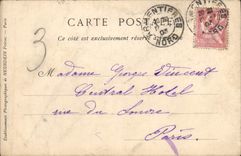 CARTE POSTALE
Ce côté est exclusivement réservé
3
Madame Georges Vincent
Central Hotel
rue du Louvre
Paris.
Etablissements Photographiques de NEURDEIN Frères. — Paris
NORD